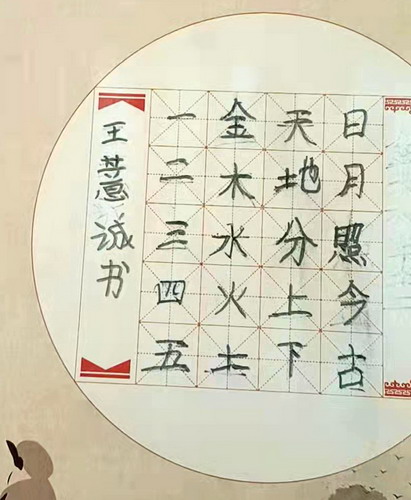 日月照今古
天地分上下
金木水火土
一二三四五
王慧诚书